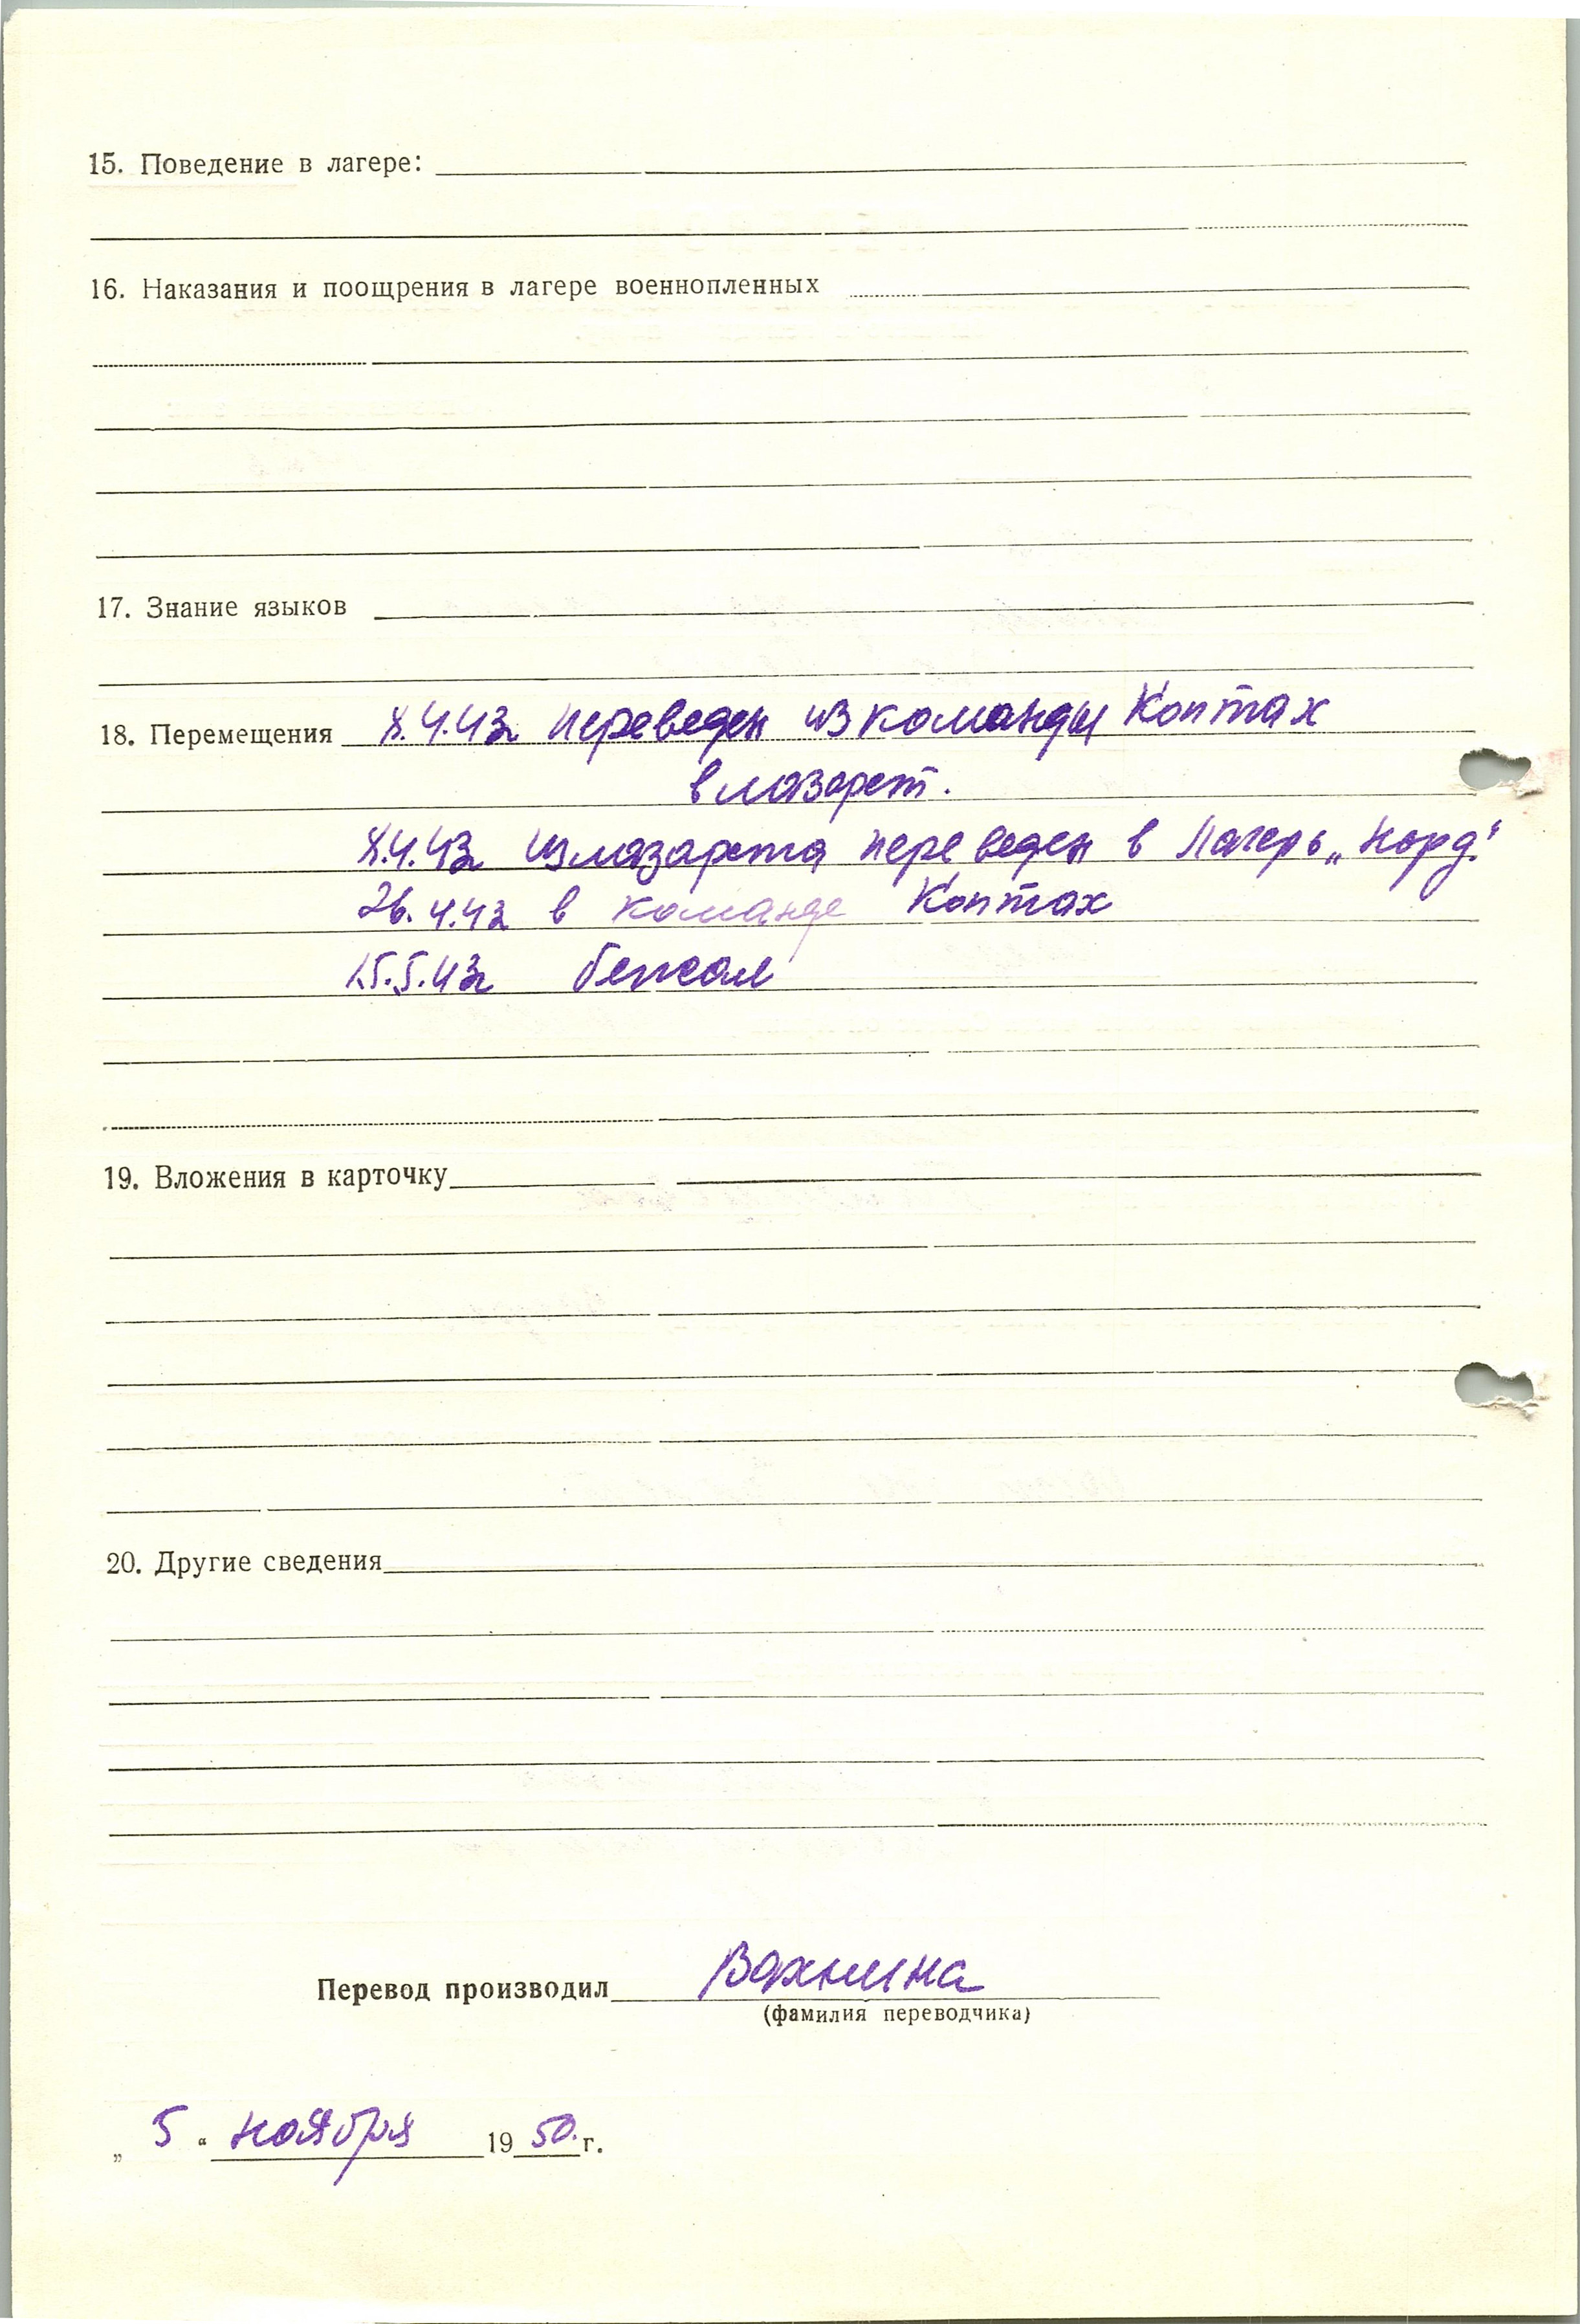 15. Поведение в лагере:
16. Наказания и поощрения в лагере военнопленных
17. Знание языков
18. Перемещения 8.4.43г переведен из команды Коптах
в лазарет.
8.4.43г из лазарета переведен в лагерь „Норд“.
26.4.43г в команде Коптах
15.5.43г бежал
19. Вложения в карточку
20. Другие сведения
Перевод производил Вахнина
(фамилия переводчика)
„ 5 “ ноября 1950 г.